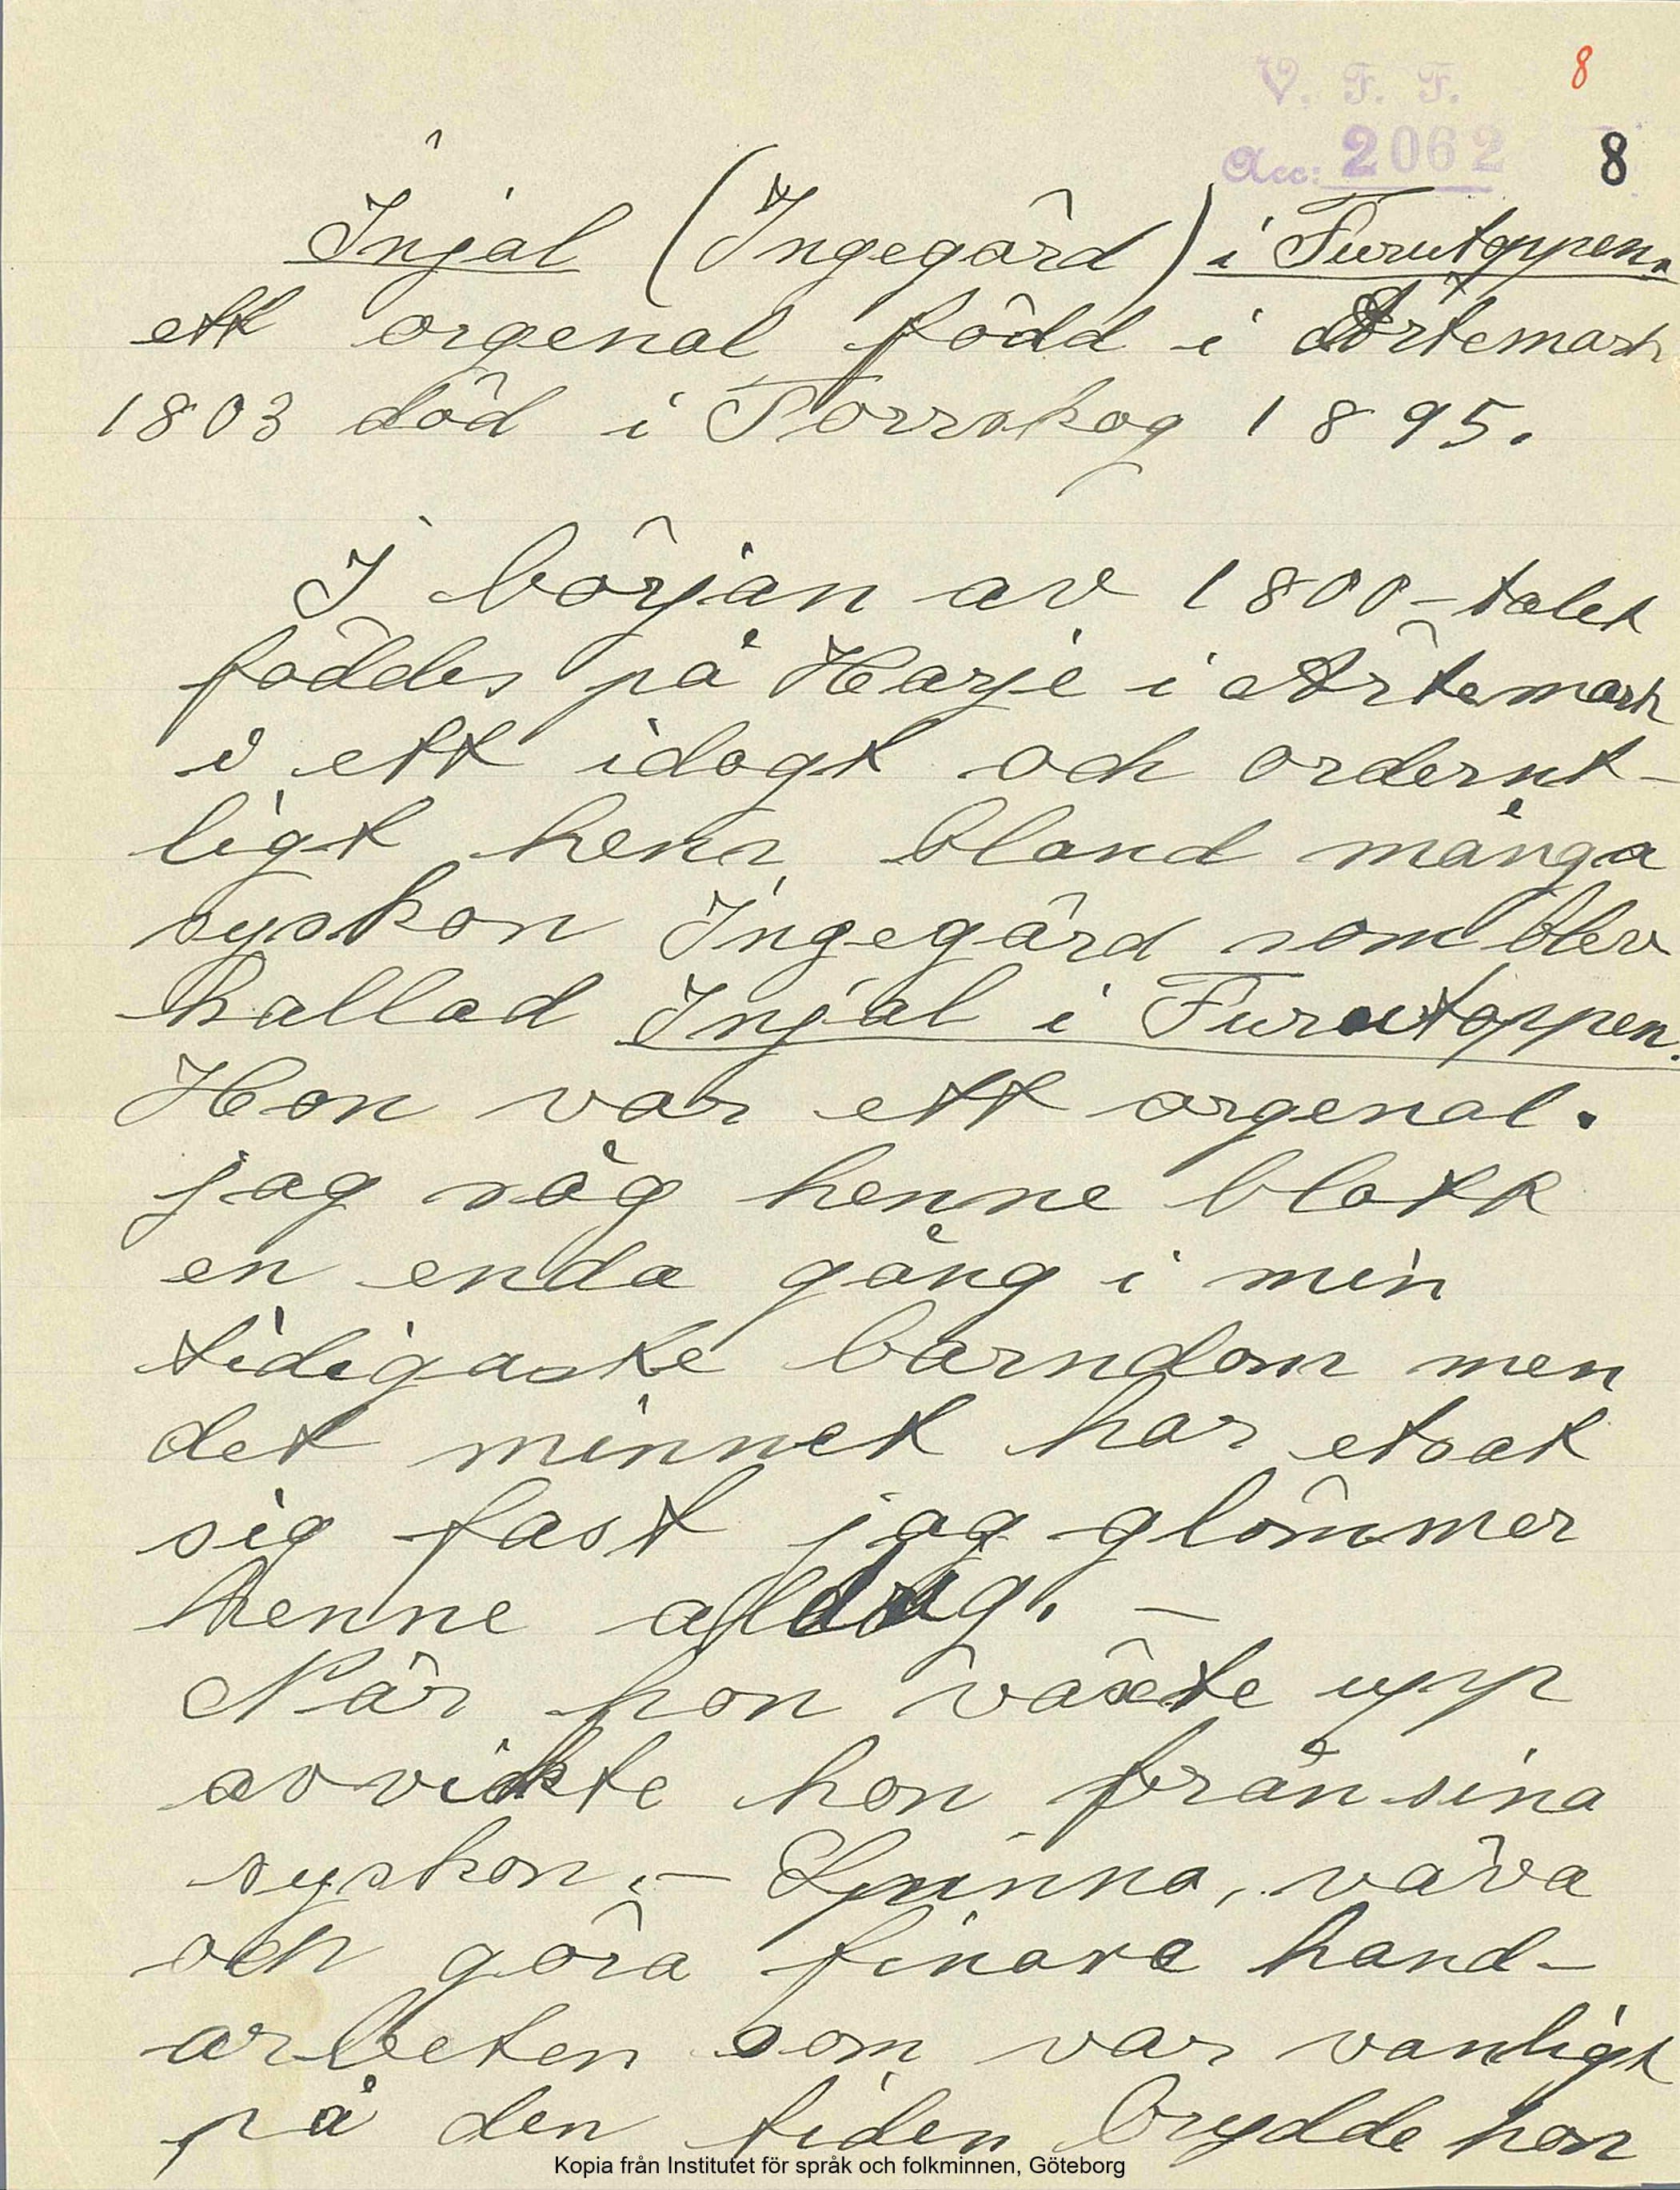 8
V. F. F.
Acc: 2062
8
Injal (Ingegärd) i Furutoppen.
ett orgenal född i Ärtemark
1803 död i Torrskog 1895.
I början av 1800-talet
föddes på Harje i Ärtemark
i ett idogt och ordernt-
ligt hem bland många
syskon Ingegärd som blev
kallad Injal i Furutoppen.
Hon var ett orgenal.
jag såg henne blott
en enda gång i min
tidigaste barndom men
det minnet har etsat
sig fast jag glömmer
henne aldrig. —
När hon växte upp
avvikte hon från sina
syskon. — Spinna, väva
och göra finare hand-
arbeten som var vanligt
på den tiden brydde hon
Kopia från Institutet för språk och folkminnen, Göteborg